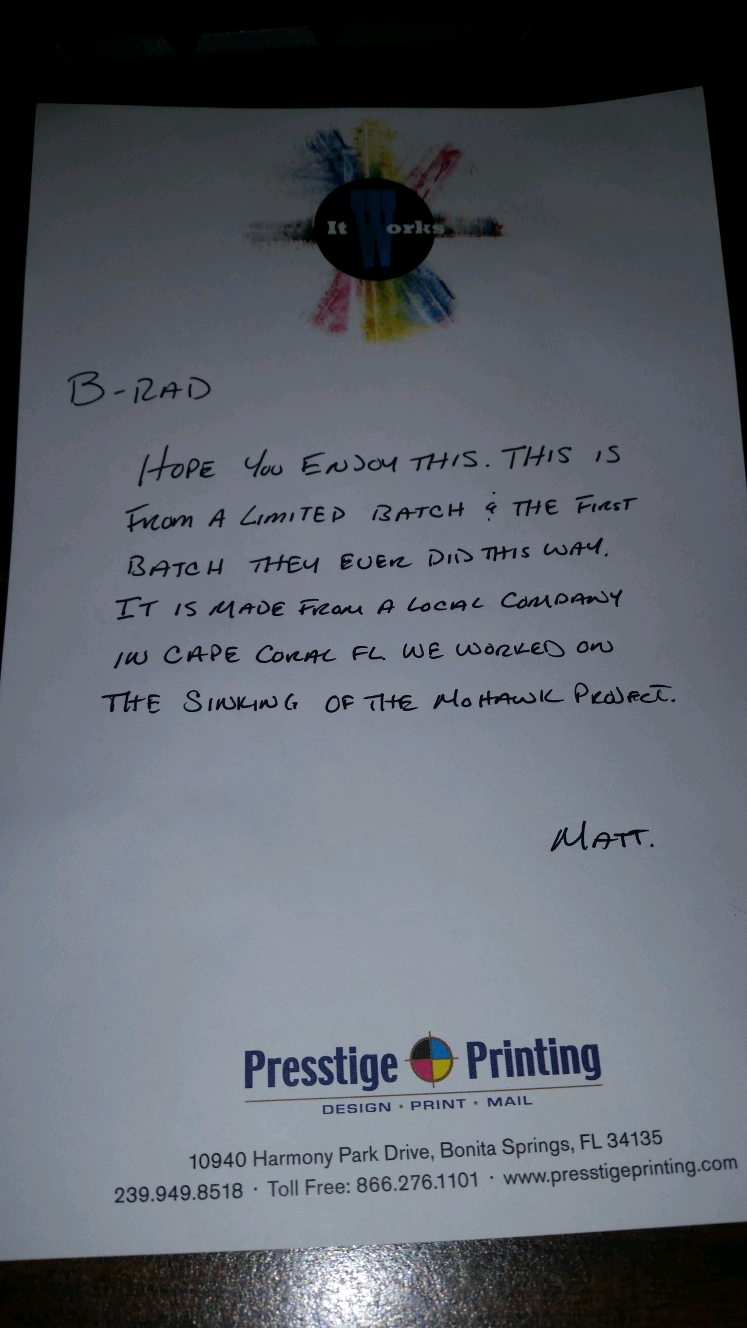 It Works
B-RAD
HOPE YOU ENJOY THIS. THIS IS
FROM A LIMITED BATCH & THE FIRST
BATCH THEY EVER DID THIS WAY.
IT IS MADE FROM A LOCAL COMPANY
IN CAPE CORAL FL WE WORKED ON
THE SINKING OF THE MOHAWK PROJECT.
MATT.
Presstige Printing
DESIGN · PRINT · MAIL
10940 Harmony Park Drive, Bonita Springs, FL 34135
239.949.8518 · Toll Free: 866.276.1101 · www.presstigeprinting.com